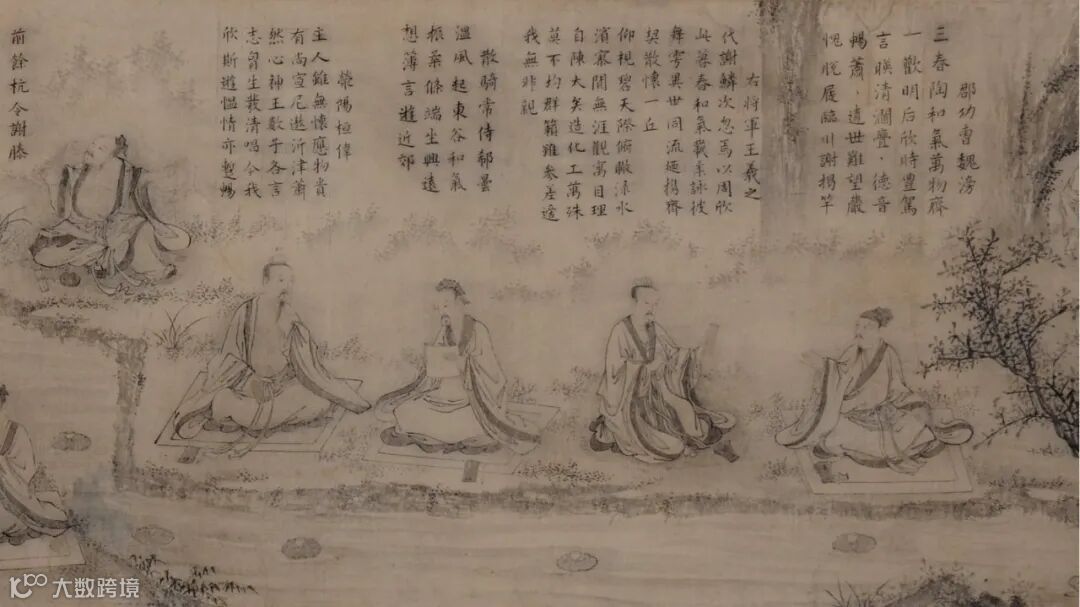 郡功曹魏滂
三春陶和氣萬物齊
一歡明后欣時豐駕
言暎清瀾亹〻德音
暢蕭〻遺世難望巖
愧脫屣臨川謝揭竿
右將軍王羲之
代謝鱗次忽焉以周欣
此暮春和氣載柔詠彼
舞雩異世同流廼携齊
契散懷一丘
仰視碧天際俯瞰淥水
濱寥閴無涯觀寓目理
自陳大矣造化工萬殊
莫不均群籟雖參差適
我無非親
散騎常侍郗曇
溫風起東谷和氣
振柔條端坐興遠
想薄言遊近郊
滎陽桓偉
主人雖無懷應物貴
有尚宣尼遨沂津蕭
然心神王數子各言
志曾生發清唱今我
欣斯遊慍情亦蹔暢
前餘杭令謝滕
大数跨境